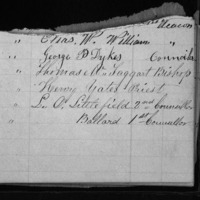 Deacon
" Chas. W. William "
" George D Dykes Councilr
" Thomas A. Taggart Bishop
" Henry Yates Priest
" L. O. Littlefield 2nd Councillor
" Ballard 1st Councillor